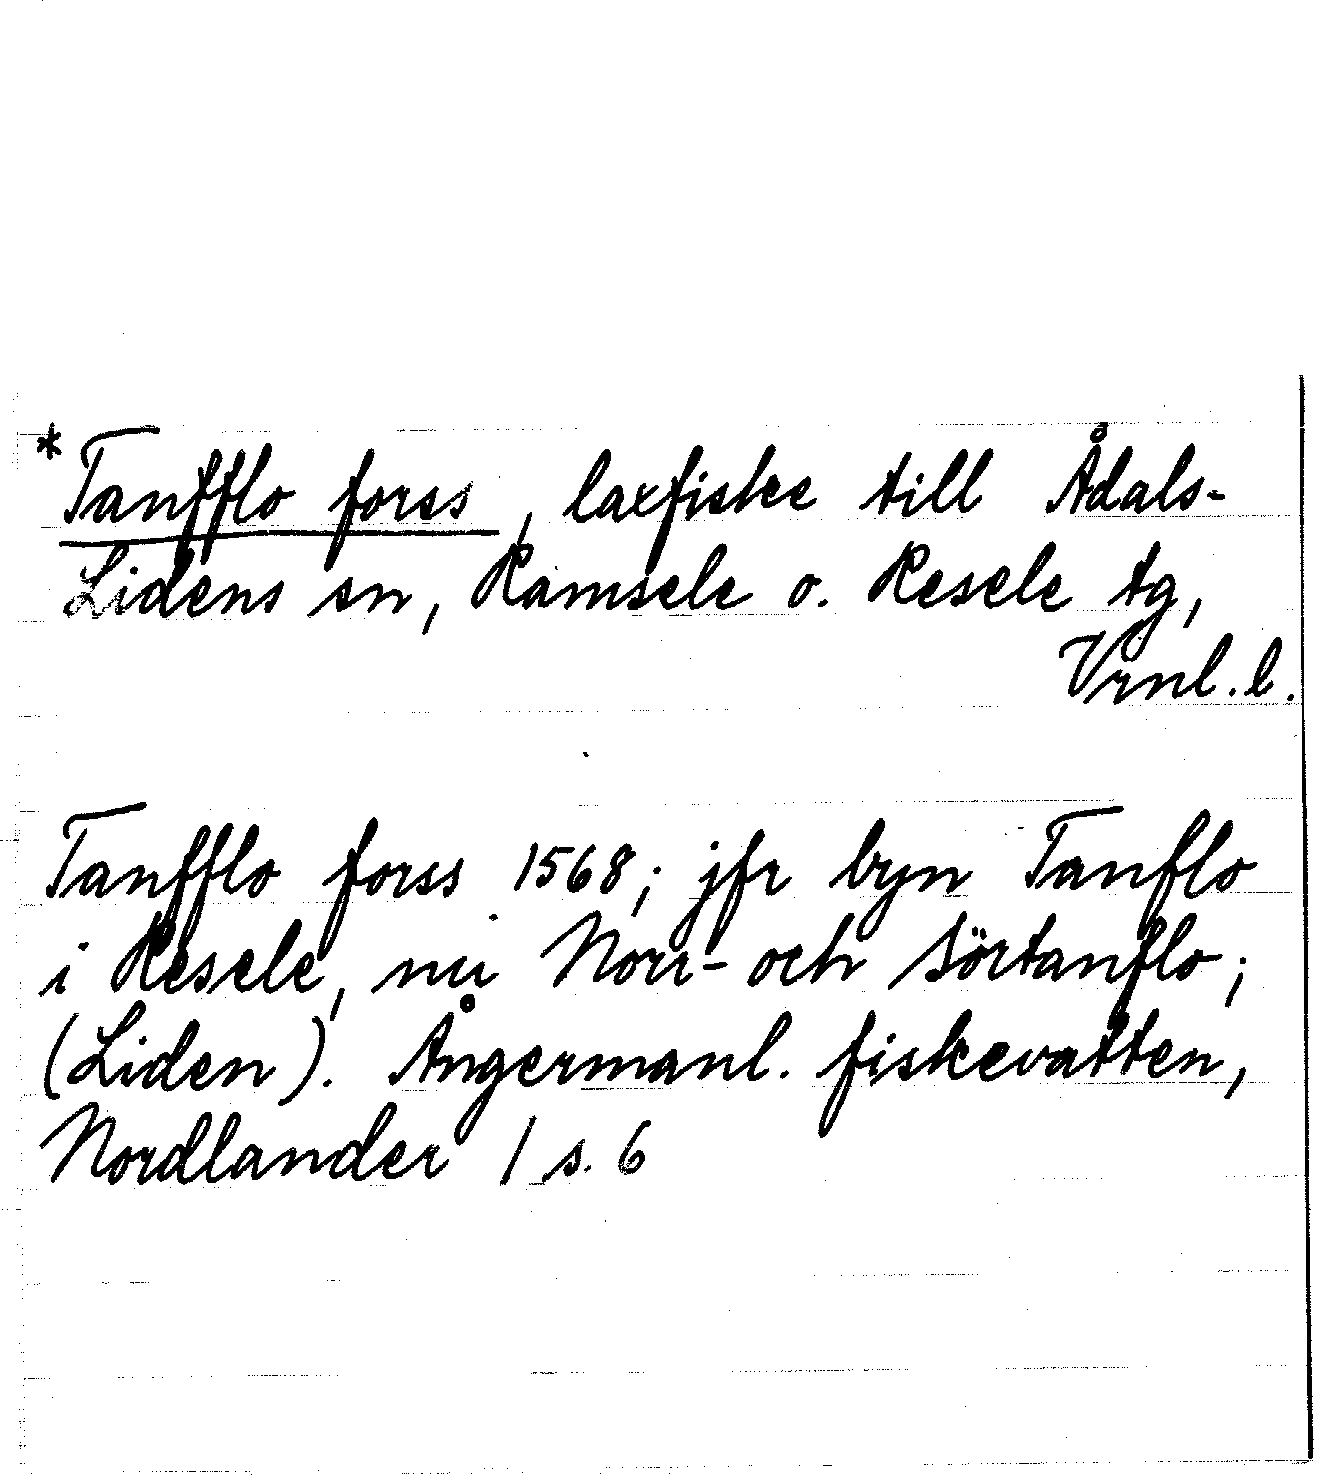 *Tanfflo forss, laxfiske till Ådals-
Lidens sn, Ramsele o. Resele tg,
Vrnl. l.
Tanfflo forss 1568; jfr byn Tanflo
i Resele, nu Norr- och Sörtanflo;
(Liden). Ångermanl. fiskevatten,
Nordlander 1 s. 6